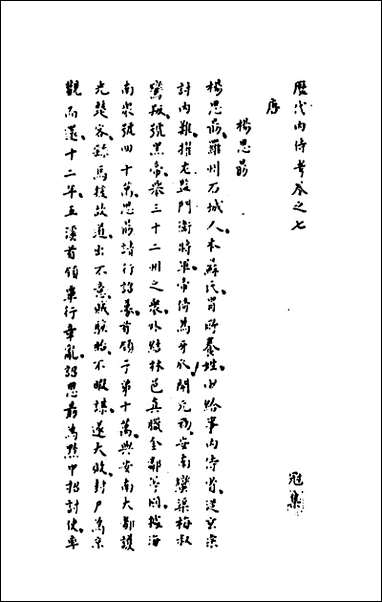 歷代內侍考卷之七
冠集
序
楊思勗
楊思勗羅州石城人本蘇氏冒所養姓少給事內侍省從玄宗
討內難擢左監門衛將軍帝倚為牙爪開元初安南蠻渠梅叔
鸞叛號黑帝舉三十二州之衆外結林邑真臘金鄰等國據海
南衆號四十萬思勗請行詔募首領子弟十萬與安南大都護
光楚客繇馬援故道出不意賊駭眙不暇謀遂大敗封尸為京
觀而還十二年五溪首領覃行章亂詔思勗為黔中招討使率